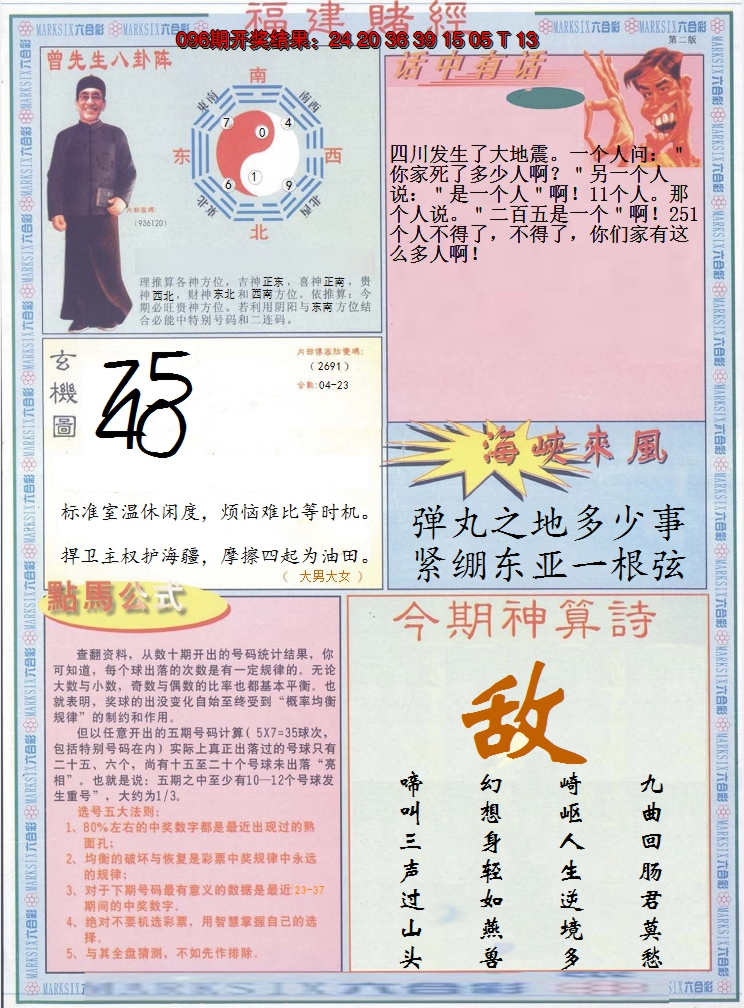 福建賭經
096期开奖结果：24 20 36 39 15 05 T 13
第二版
MARKSIX六合彩
曾先生八卦阵
南
东南
南西
7
0
4
东
西
6
1
9
东北
北西
北
內部密碼：
（936120）
理推算各神方位，吉神正东，喜神正南，贵
神西北，财神东北和西南方位。依推算：今
期必旺贵神方位。若利用阴阳与东南方位结
合必能中特别号码和二连码。
话中有话
四川发生了大地震。一个人问："
你家死了多少人啊？"另一个人
说："是一个人"啊！11个人。那
个人说。"二百五是一个"啊！251
个人不得了，不得了，你们家有这
么多人啊！
玄機圖
75
40
（2691）
合数:04-23
标准室温休闲度，烦恼难比等时机。
捍卫主权护海疆，摩擦四起为油田。
（ 大男大女 ）
海峽來風
弹丸之地多少事
紧绷东亚一根弦
點馬公式
查翻资料，从数十期开出的号码统计结果，你
可知道，每个球出落的次数是有一定规律的。无论
大数与小数，奇数与偶数的比率也都基本平衡。也
就表明，奖球的出没变化自始至终受到“概率均衡
规律”的制约和作用。
但以任意开出的五期号码计算（5X7=35球次，
包括特别号码在内）实际上真正出落过的号球只有
二十五、六个，尚有十五至二十个号球未出落“亮
相”。也就是说：五期之中至少有10—12个号球发
生重号”，大约为1/3。
选号五大法则：
1、80%左右的中奖数字都是最近出现过的熟
面孔；
2、均衡的破坏与恢复是彩票中奖规律中永远
的规律；
3、对于下期号码最有意义的数据是最近23-37
期间的中奖数字。
4、绝对不要机选彩票，用智慧掌握自己的选
择。
5、与其全盘猜测，不如先作排除。
今期神算詩
敌
九曲回肠君莫愁
崎岖人生逆境多
幻想身轻如燕兽
啼叫三声过山头